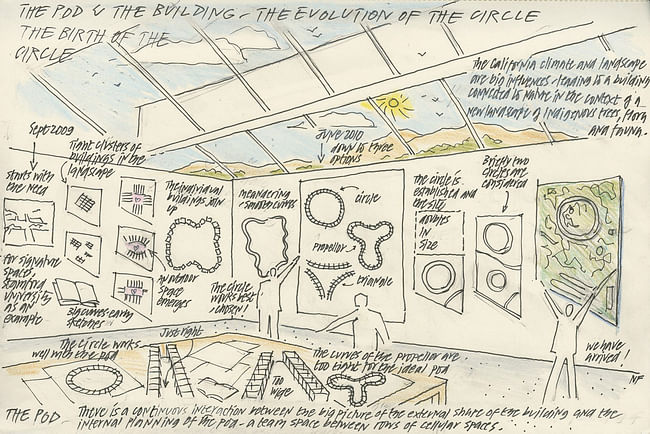 THE POD & THE BUILDING - THE EVOLUTION OF THE CIRCLE
THE BIRTH OF THE
CIRCLE
The California climate and landscape
are big influences - leading to a building
connected to nature in the context of a
new landscape of indigenous trees, flora
and fauna.
Sept 2009
starts with
the need
for signature
space,
Stanford
University
as an
example
Tight clusters of
buildings in the
landscape
big curves - early
sketches
The individual
buildings join
up
An outdoor
space
emerges
meandering
- smaller curves
The circle
works best
- chosen!
JUNE 2010
down to three
options
circle
propellor
triangle
The circle is
established and
the site
doubles
in
size
Briefly two
circles are
considered
we have
arrived!
NF
The circle works
well with the pod
Just right
Too
wide
The curves of the propellor are
too tight for the ideal pod
THE POD - There is a continuous interaction between the big picture of the external shape of the building and the
internal planning of the pod - a team space between rows of cellular spaces.